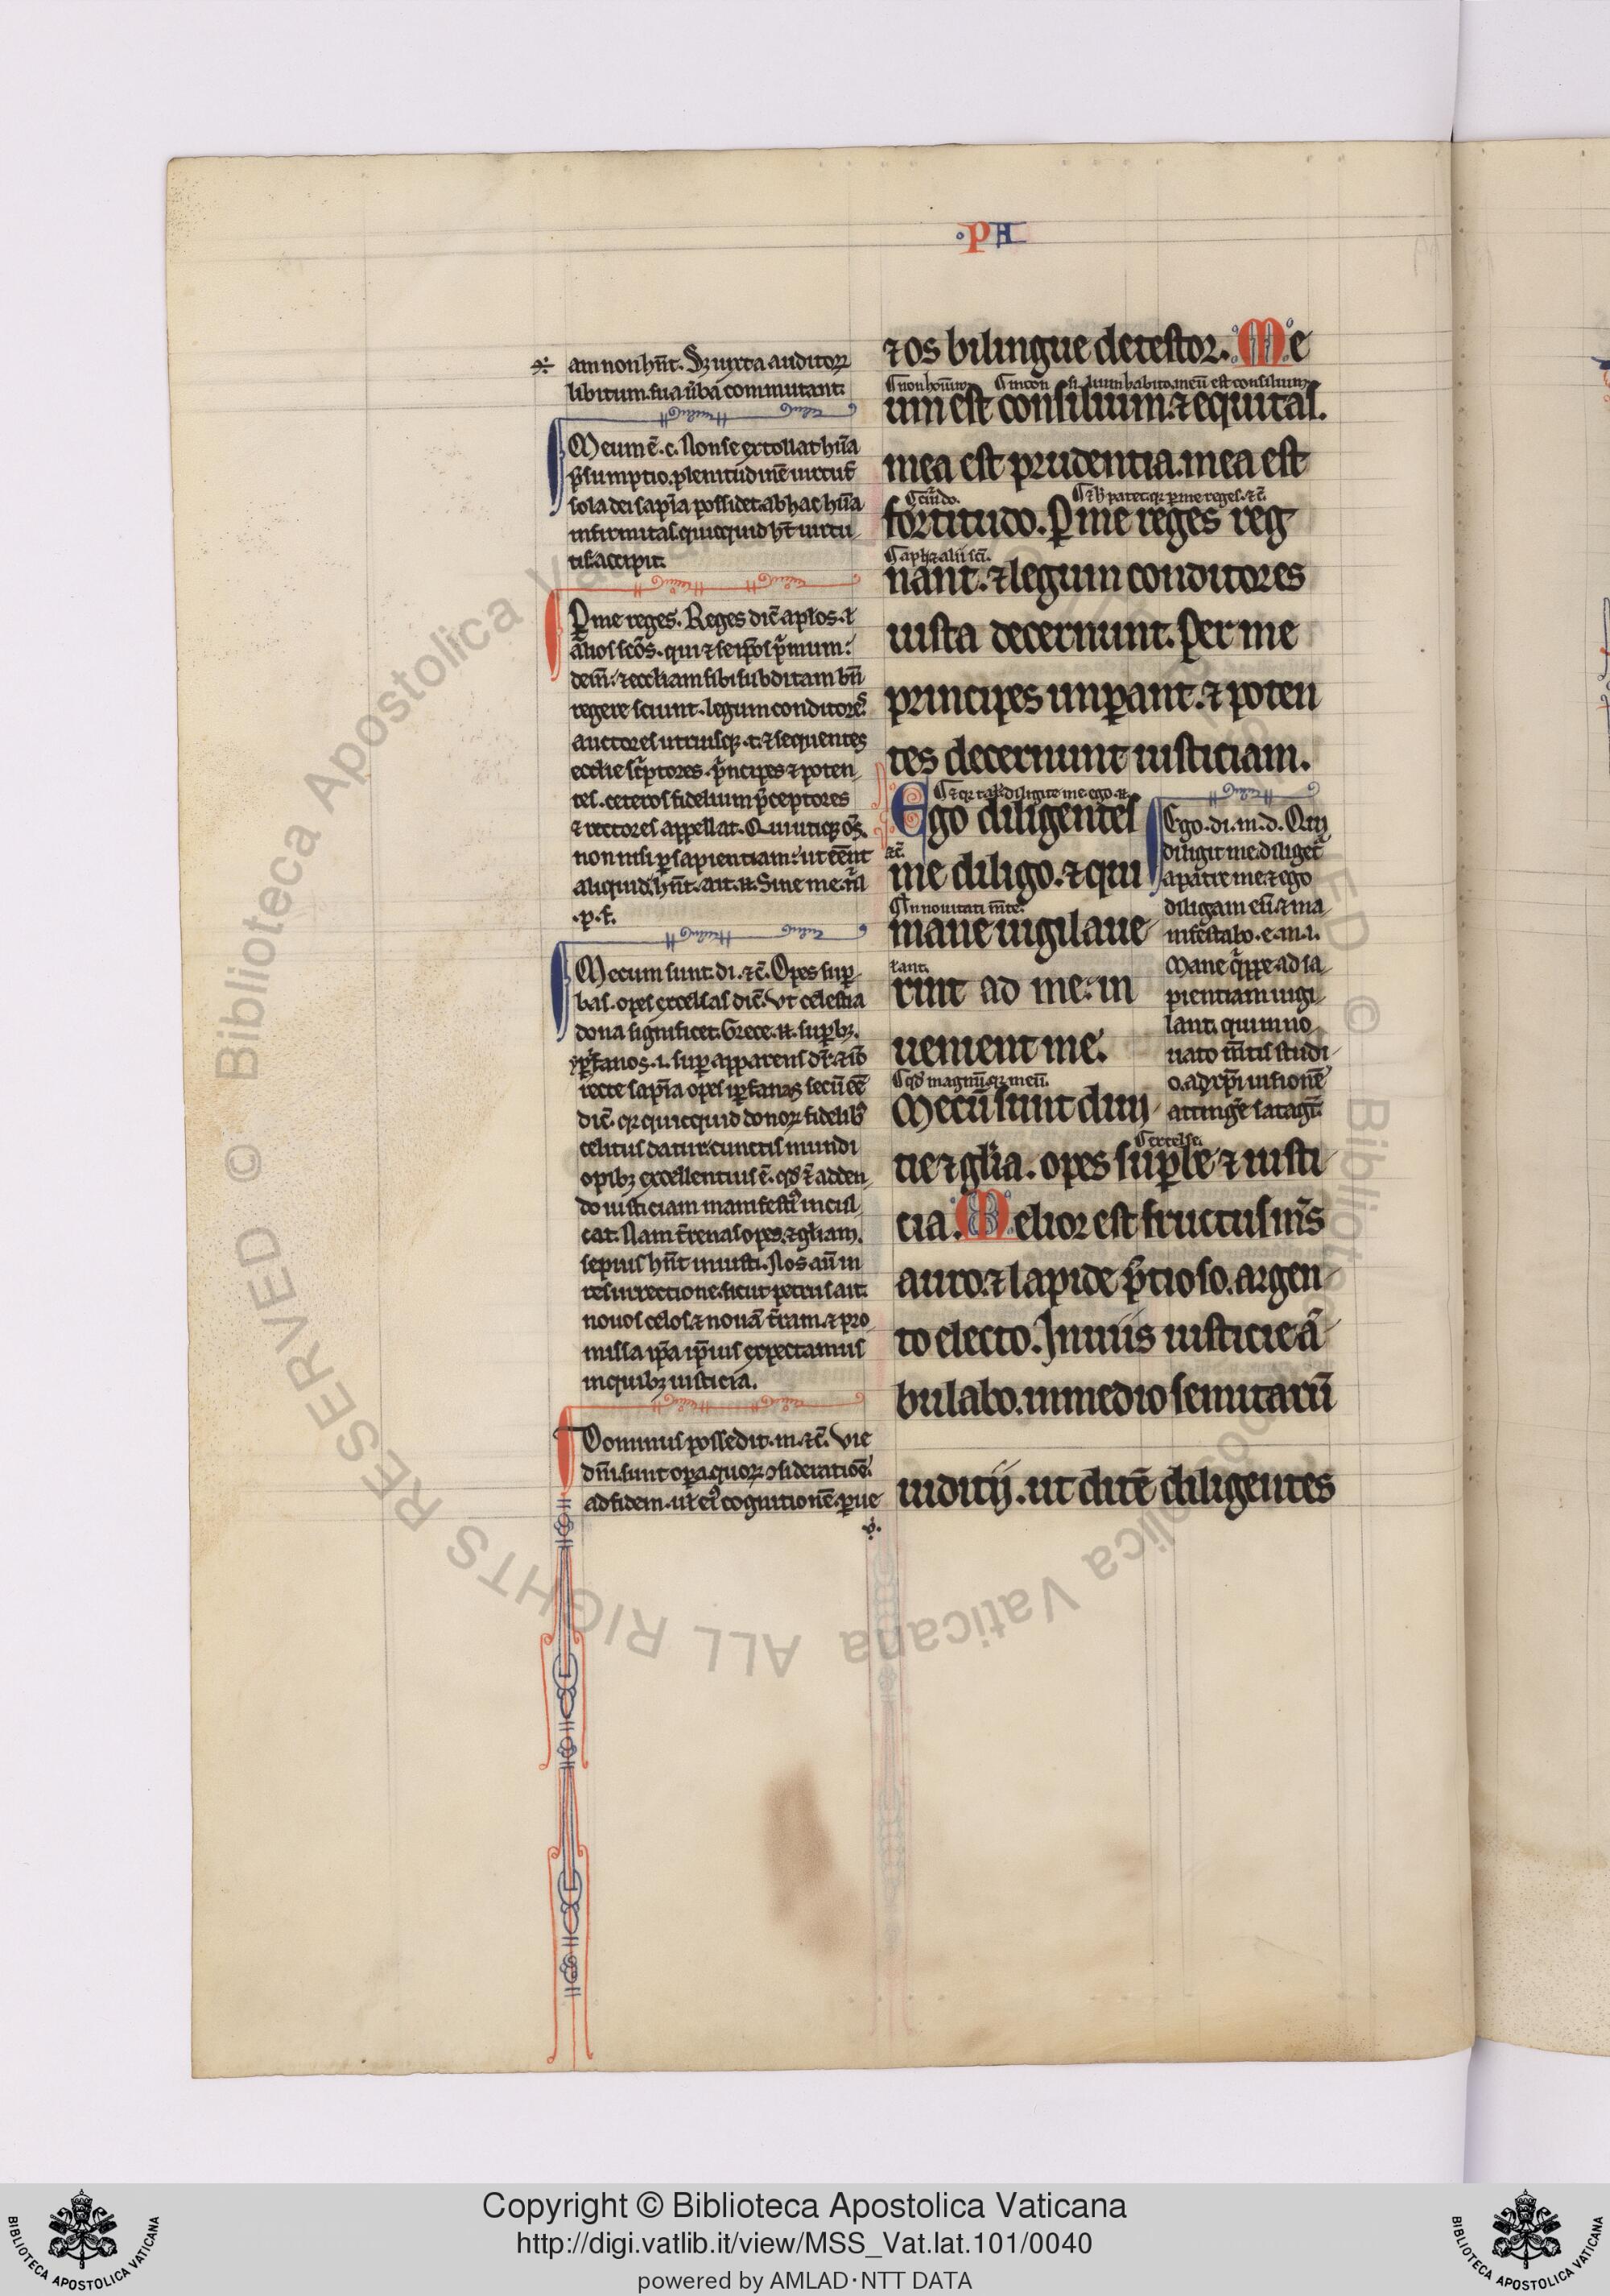 .PA
am non hn̄t. Sȝ iuxta auditoꝝ
libitum sua ūba commutant.
Meum ē. c. Non se extollat hūa
p̄sumptio. plenitudinē uirtut̄
sola dei sapīa possidet. ab hac hūa
infirmitas. quicquid ht̄ uirtu
tis accipit.
Ꝑ me reges. Reges dic̄ apl̄os. ⁊
alios sc̄os. qui ⁊ seip̄os p̄mum.
dein̄. ⁊ eccl̄iam sibi subditam bn̄
regere sciunt. legum conditores.
auctores utriusqꝫ. t. ⁊ sequentes
eccl̄ie sc̄ptores. p̄ncipes ⁊ poten
tes. ceteros fidelium p̄ceptores
⁊ rectores appellat. Qui utiqꝫ om̄s.
non nisi ꝑ sapientiam. ut eēnt
aliquid. hn̄t. ait. n̄. Sine me. nl̄
.p. f̄.
Mecum sunt. di. ⁊c̄. Opes suꝑ
bas. opes excelsas dic̄. ut celestia
dona significet. Grece. n̄. suꝑbꝫ.
yꝑfanos. i. suꝑ apparens dr̄. ⁊ iō
recte sapīa opes yꝑfanas secū eē
dic̄. qꝛ quicquid donoꝝ fidelibꝫ
celitus datur. cunctis mundi
opibꝫ excellentius ē. qd̄ ⁊ adden
do iusticiam manifestiꝰ incul
cat. Nam t̄renas opes. ⁊ gl̄iam.
sepius hn̄t iniusti. Nos aū in
resurrectione. sicut petrus ait.
nouos celos. ⁊ nouā t̄ram. ⁊ pro
missa ip̄a ip̄ius expectamus
in quibꝫ iusticia.
Dominus possedit. m. ⁊c̄. Vie
dn̄i. sunt oꝑa. quoꝝ ꝯsideratiōe.
ad fidem. ut eiꝰ cognitionē. ꝑue
⁊ os bilingue detestor. Me
um est consilium. ⁊ equitas.
mea est prudentia. mea est
fortitudo. Ꝑ me reges reg
nant. ⁊ legum conditores
iusta decernunt. Per me
principes imꝑant. ⁊ poten
tes decernunt iusticiam.
Ego diligentes
me diligo. ⁊ qui
mane uigilaue
rint ad me. in
uenient me.
Mecū sunt diui
tie ⁊ gl̄ia. opes suꝑbe ⁊ iusti
cia. Melior est fructus mīs
auro. ⁊ lapide p̄tioso. argen
to electo. In uiis iusticie ā
bulabo. in medio semitarū
iuditij. ut ditē diligentes
Ego. di. m. d. Qui
diligit me. diliget̄
a patre meo. ⁊ ego
diligam eū. ⁊ ma
nifestabo. e. m. i.
Mane q̄ppe ad sa
pientiam uigi
lant. qui in no
uato m̄tis studi
o. ad xp̄i uisionē
attingē satagūt.
Copyright © Biblioteca Apostolica Vaticana
http://digi.vatlib.it/view/MSS_Vat.lat.101/0040
powered by AMLAD·NTT DATA